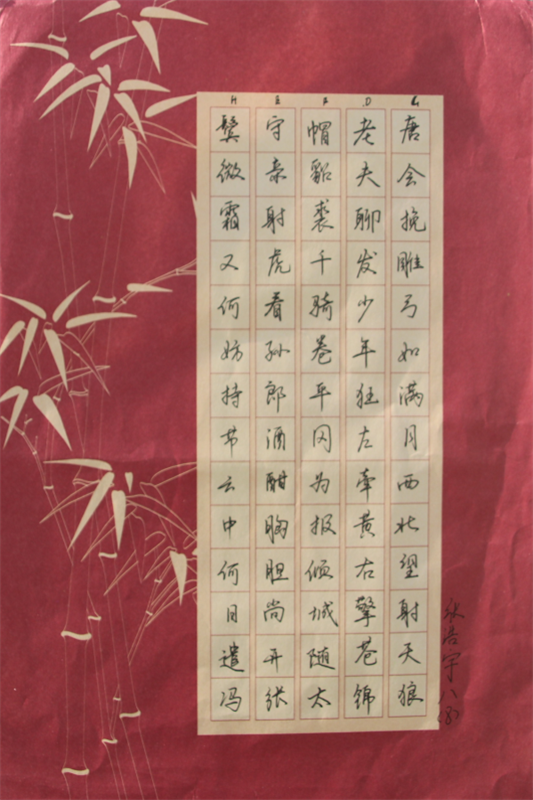 H E F D G
唐会挽雕弓如满月西北望射天狼
老夫聊发少年狂左牵黄右擎苍锦
帽貂裘千骑卷平冈为报倾城随太
守亲射虎看孙郎酒酣胸胆尚开张
鬓微霜又何妨持节云中何日遣冯
张浩宇八(8)